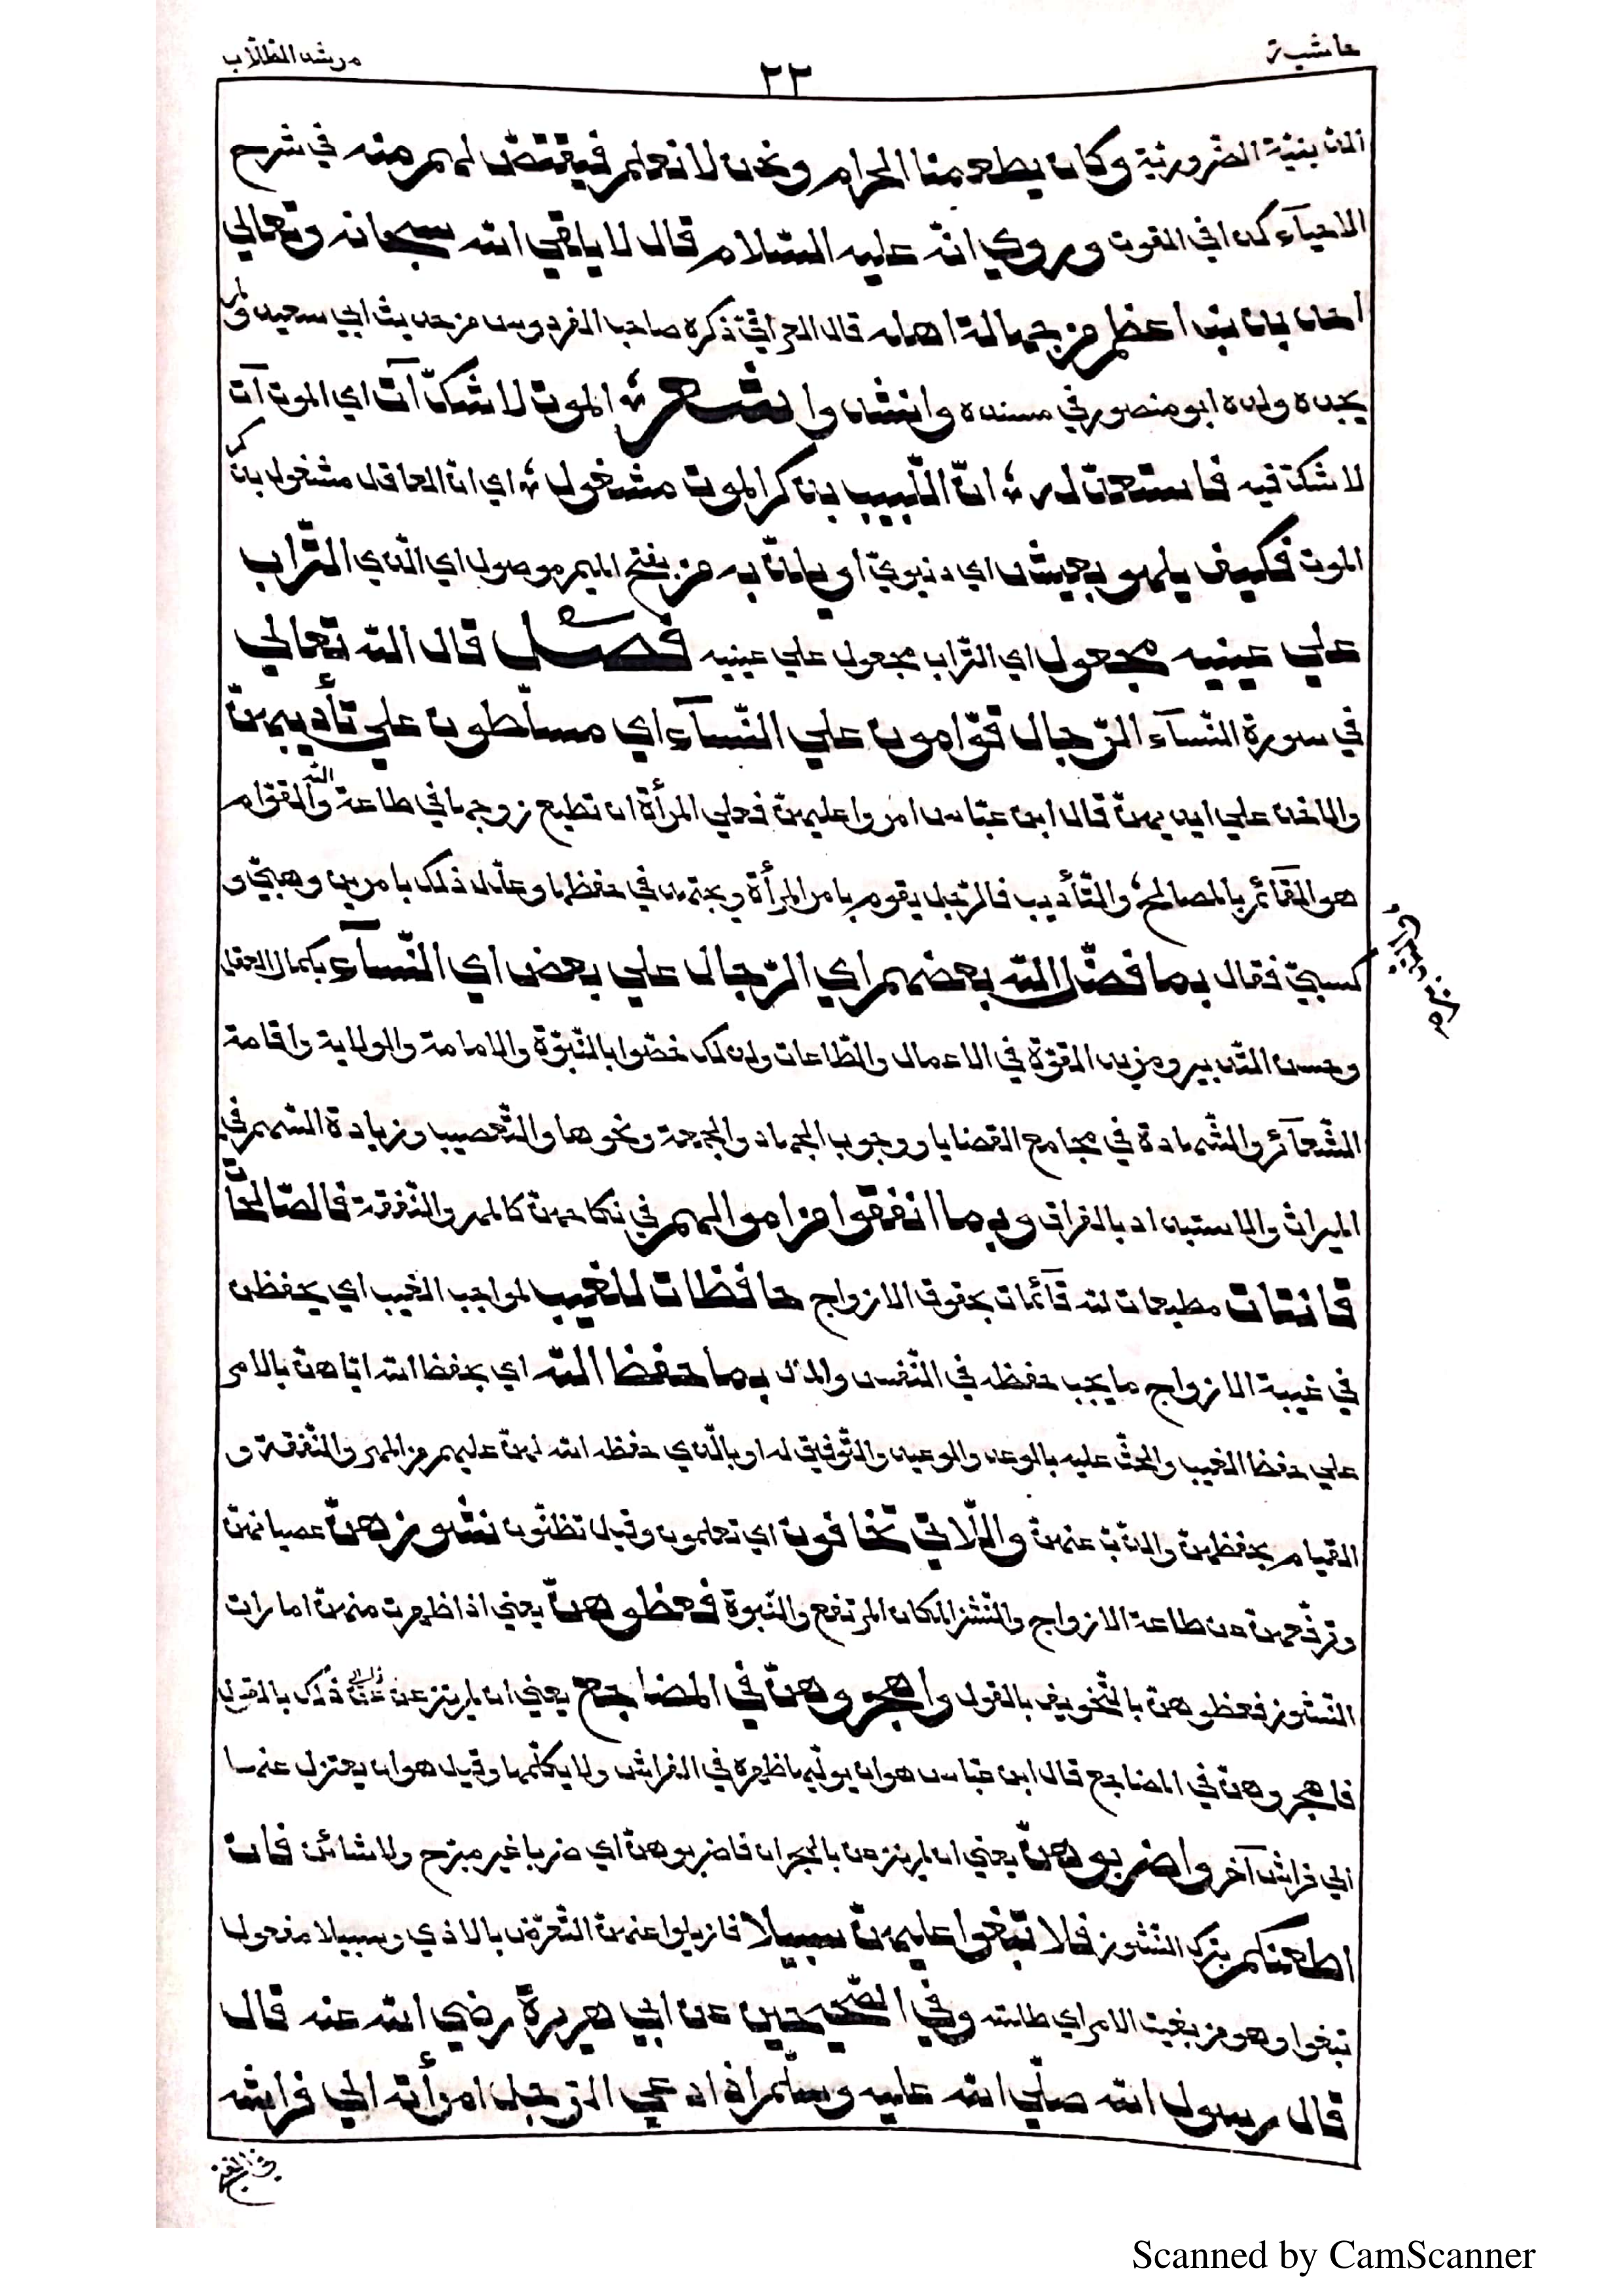 حاشية
٢٣
مرشد الطلاب
الدينية الضرورية وكان يطعمنا الحرام ونحن لا نعلم فيقتص لهم منه في شرح
الاحياء كذا في القوت وروي انه عليه السلام قال لا يلقي الله سبحانه وتعالي
احد بذنب اعظم من جهالة اهله قال العراقي ذكره صاحب الفردوس من حديث ابي سعيد ولم
يجده ولده ابو منصور في مسنده وانشدوا شعر الموت لا شك آت اي الموت آت
لا شك فيه فاستعدن له ان اللبيب بذكر الموت مشغول اي ان العاقل مشغول بذكر
الموت فكيف يلهو بعيش اي دنيوي او يلذ به من بفتح الميم موصول اي الذي التراب
علي عينيه مجعول اي التراب مجعول علي عينيه فصل قال الله تعالي
في سورة النسآء الرّجال قوّامون علي النّسآء اي مسلّطون علي تأديبهنّ
والاخذ علي ايديهنّ قال ابن عبّاس امروا عليهنّ فعلي المرأة ان تطيع زوجها في طاعة الله والقوّام
هو القآئم بالمصالح والتّأديب فالرّجل يقوم بامر المرأة ويجتهد في حفظها وعلّل ذلك بامرين وهبيّ و
كسبيّ فقال بما فضّل الله بعضهم اي الرّجال علي بعض اي النّسآء بكمال العقل
وحسن التّدبير ومزيد القوّة في الاعمال والطّاعات ولذلك خصّوا بالنّبوّة والامامة والولاية واقامة
الشّعآئر والشّهادة في مجامع القضايا ووجوب الجهاد والجمعة ونحوها والتّعصيب وزيادة السّهم في
الميراث والاستبداد بالفراق وبما انفقوا من اموالهم في نكاحهنّ كالمهر والنّفقة فالصّالحات
قانتات مطيعات لله قآئمات بحقوق الازواج حافظات للغيب لمواجب الغيب اي يحفظن
في غيبة الازواج ما يجب حفظه في النّفس والمال بما حفظ الله اي بحفظ الله ايّاهنّ بالامر
علي حفظ الغيب والحثّ عليه بالوعد والوعيد والتّوفيق له او بالّذي حفظه الله لهنّ عليهم من المهر والنّفقة و
القيام بحفظهنّ والذّبّ عنهنّ والّلاتي تخافون اي تعلمون وقيل تظنّون نشوزهنّ عصيانهنّ
وترفّعهنّ عن طاعة الازواج والنّشز المكان المرتفع والنّبوة فعظوهنّ يعني اذا ظهرت منهنّ امارات
النّشوز فعظوهنّ بالتّخويف بالقول واهجروهنّ في المضاجع يعني ان لم ينزعن عن ذلك بالقول
فاهجروهنّ في المضاجع قال ابن عبّاس هو ان يولّيها ظهره في الفراش ولا يكلّمها وقيل هو ان يعتزل عنها
الي فراش آخر واضربوهنّ يعني ان لم ينزعن بالهجران فاضربوهنّ اي ضربا غير مبرّح ولا شائن فان
اطعنكم بترك النّشوز فلا تبغوا عليهنّ سبيلا فازيلوا عنهنّ التّعرّض بالاذي وسبيلا مفعول
تبغوا وهو من بغيت الامر اي طلبته وفي الصّحيحين عن ابي هريرة رضي الله عنه قال
قال رسول الله صلّي الله عليه وسلّم اذا دعي الزوجل امرأته الي فراشه
Scanned by CamScanner